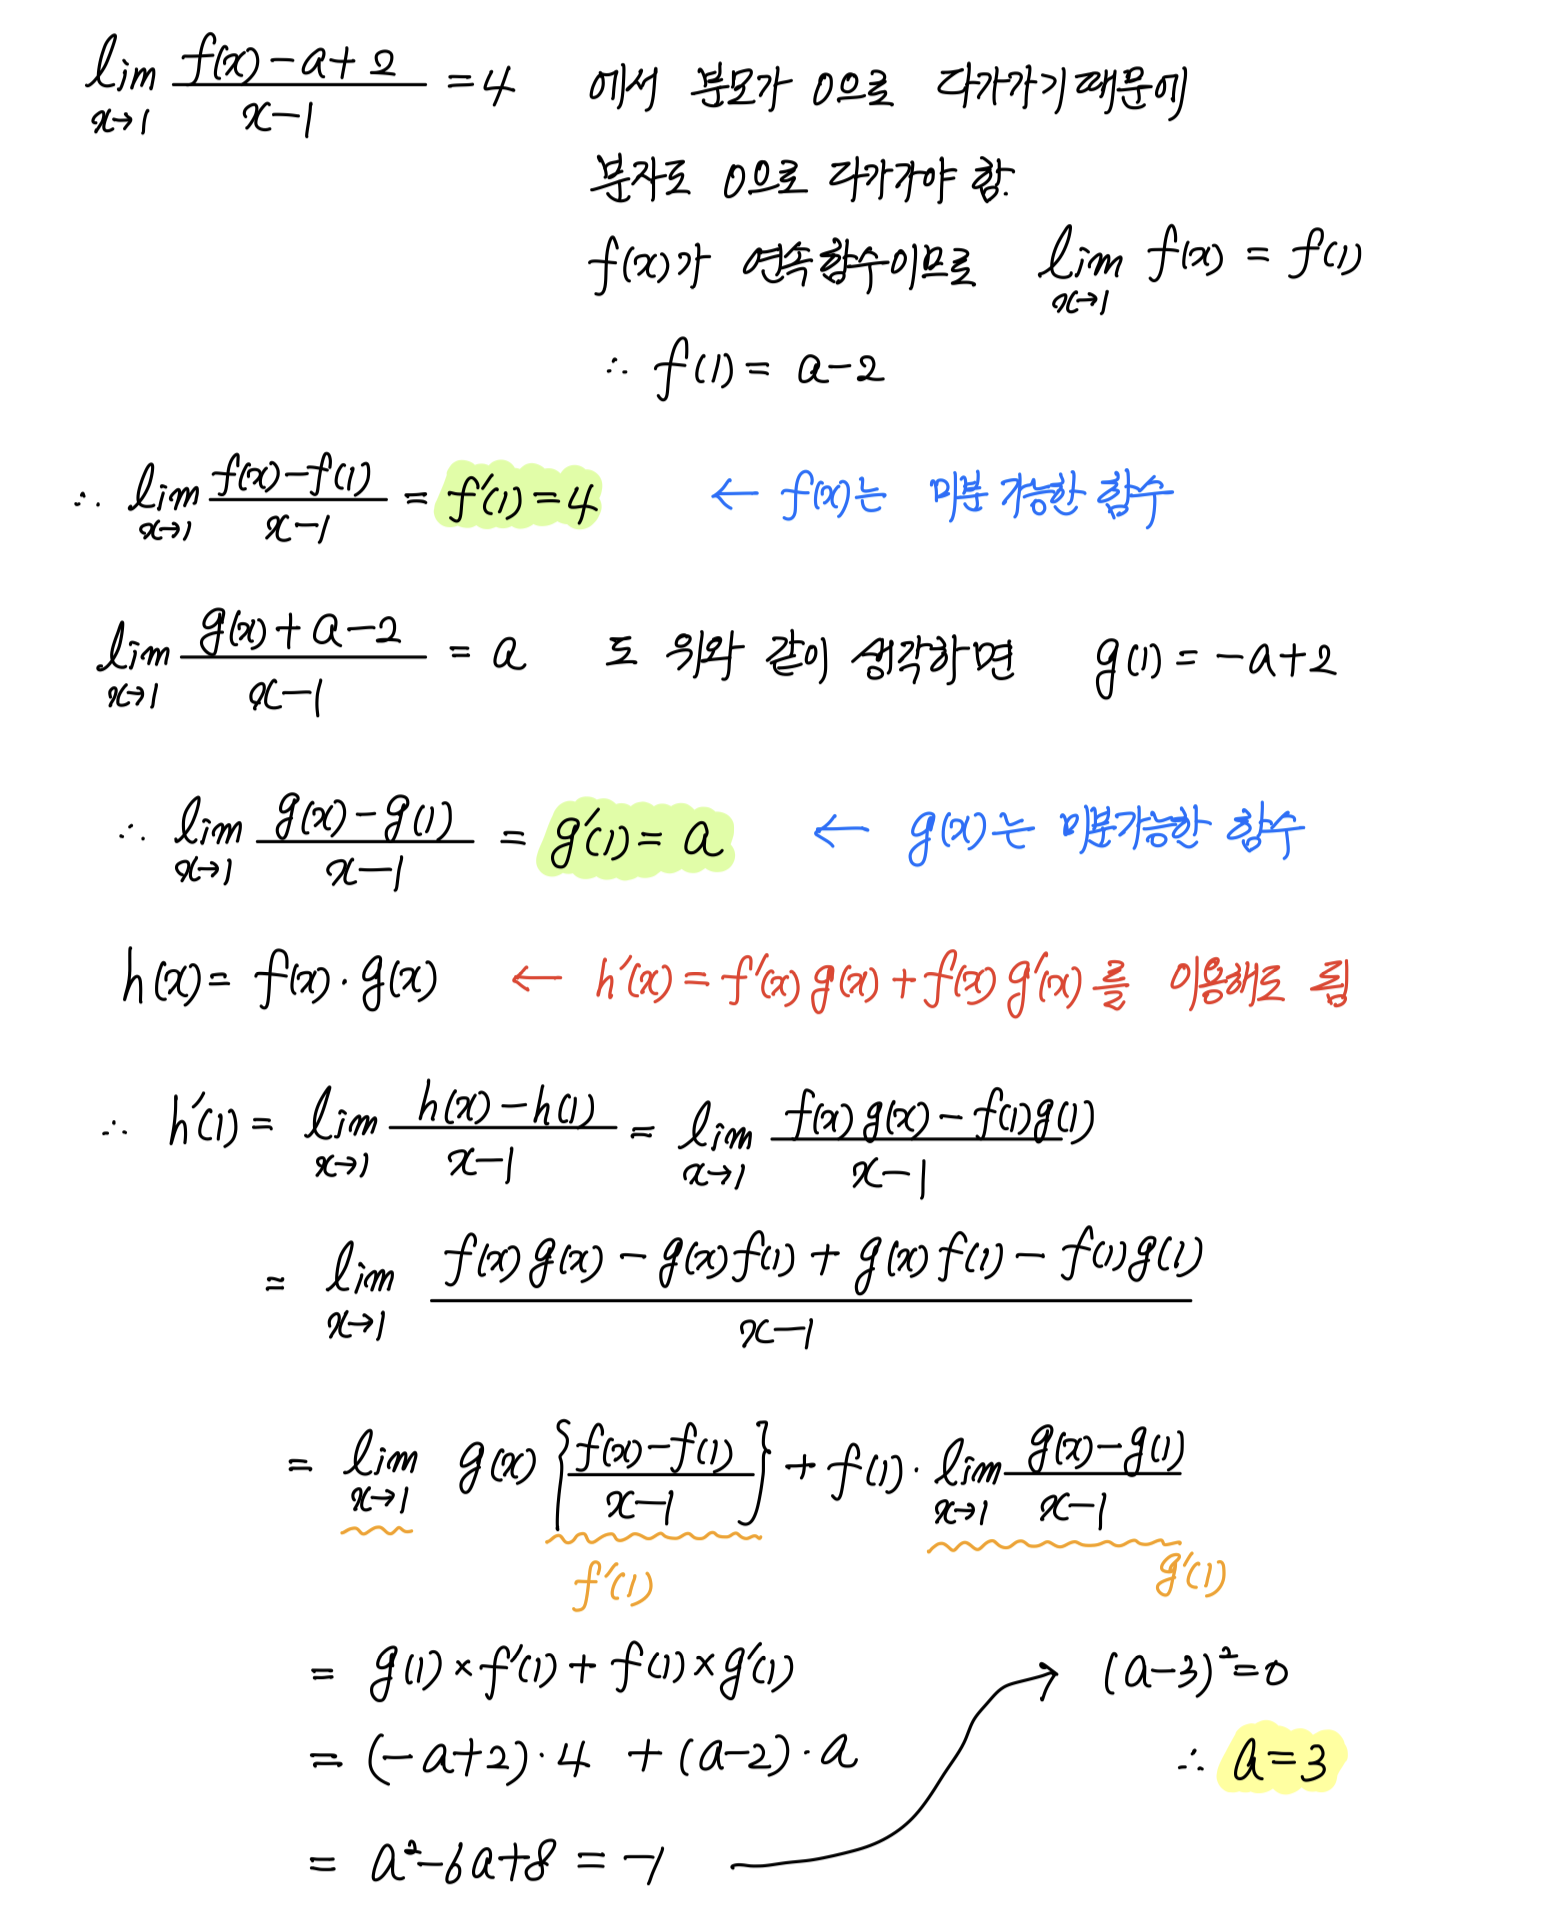 lim x→1 (f(x)-a+2)/(x-1) = 4 에서 분모가 0으로 다가가기때문에
분자도 0으로 다가가야 함.
f(x)가 연속함수이므로 lim x→1 f(x) = f(1)
∴ f(1) = a-2
∴ lim x→1 (f(x)-f(1))/(x-1) = f'(1) = 4 ← f(x)는 미분 가능한 함수
lim x→1 (g(x)+a-2)/(x-1) = a 도 위와 같이 생각하면 g(1) = -a+2
∴ lim x→1 (g(x)-g(1))/(x-1) = g'(1) = a ← g(x)는 미분가능한 함수
h(x) = f(x)·g(x) ← h'(x) = f'(x)g(x)+f(x)g'(x)를 이용해도 됨
∴ h'(1) = lim x→1 (h(x)-h(1))/(x-1) = lim x→1 (f(x)g(x)-f(1)g(1))/(x-1)
= lim x→1 (f(x)g(x)-g(x)f(1)+g(x)f(1)-f(1)g(1))/(x-1)
= lim x→1 g(x){(f(x)-f(1))/(x-1)}+f(1)·lim x→1 (g(x)-g(1))/(x-1)
f'(1) g'(1)
= g(1)×f'(1)+f(1)×g'(1)
= (-a+2)·4 +(a-2)·a
= a²-6a+8 = -1
→ (a-3)²=0
∴ a=3